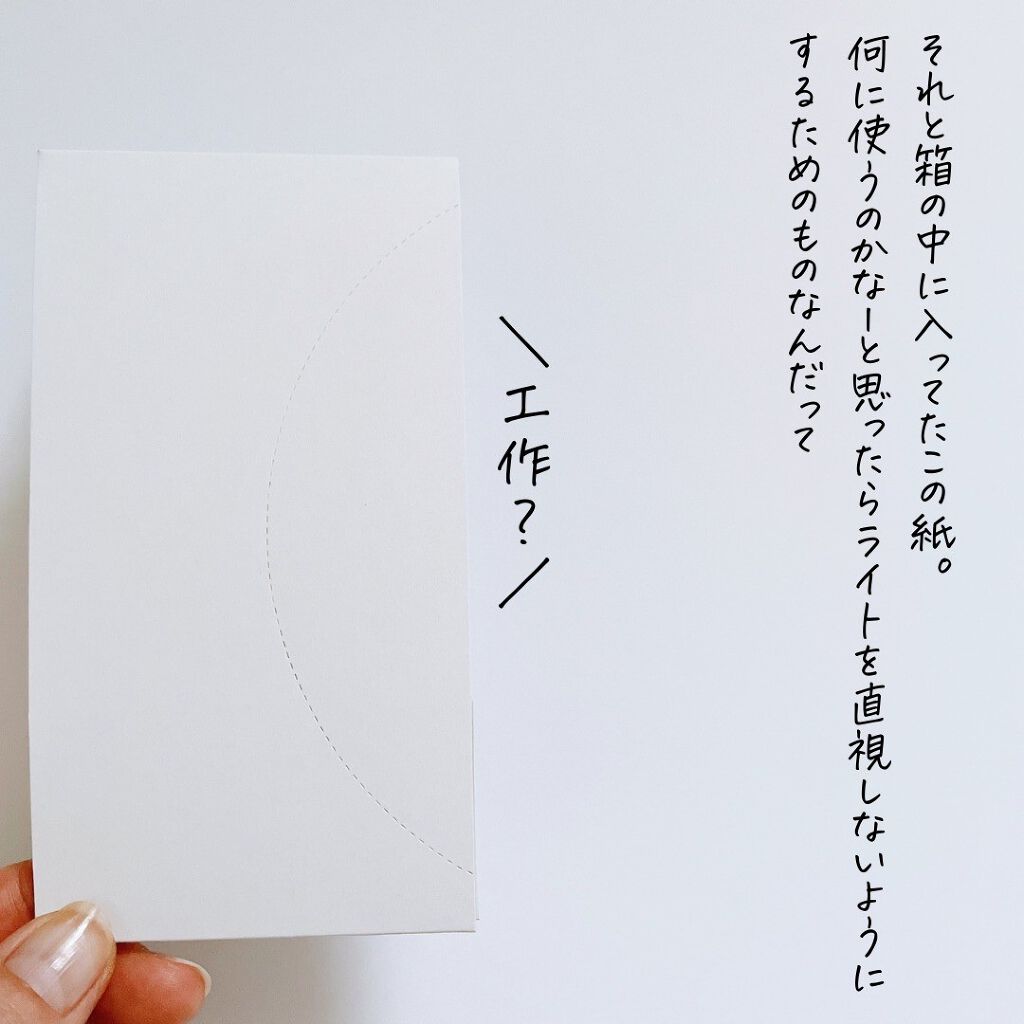 それと箱の中に入ってたこの紙。
何に使うのかなーと思ったらライトを直視しないように
するためのものなんだって
＼工作？／